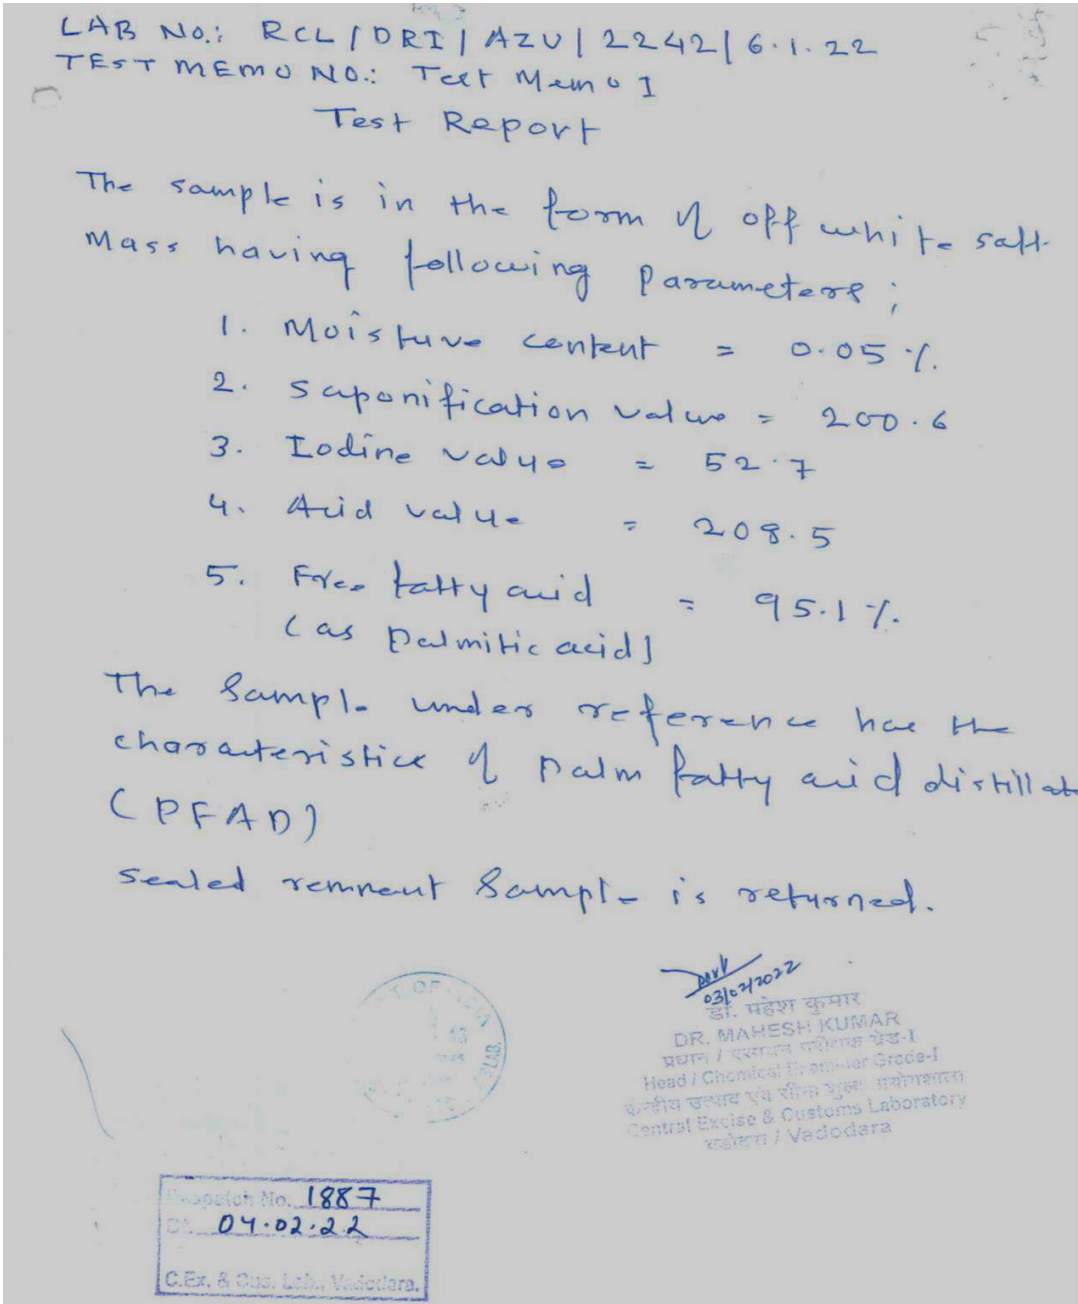 LAB No.: RCL/DRI/AZU/2242/6.1.22
TEST MEMO NO.: Test Memo I
Test Report
The sample is in the form of off white soft
Mass having following parameters;
1. Moisture content = 0.05 %.
2. Saponification value = 200.6
3. Iodine value = 52.7
4. Acid value = 208.5
5. Free fatty acid = 95.1 %.
(as palmitic acid)
The Sample under reference has the
characteristics of palm fatty acid distillate
(PFAD)
Sealed remnant Sample is returned.
03/02/2022
डॉ. महेश कुमार
DR. MAHESH KUMAR
प्रधान / रसायन परीक्षक ग्रेड-I
Head / Chemical Examiner Grade-I
केन्द्रीय उत्पाद एवं सीमा शुल्क प्रयोगशाला
Central Excise & Customs Laboratory
वडोदरा / Vadodara
Despatch No. 1887
Dt. 04.02.22
C.Ex. & Cus. Lab., Vadodara.